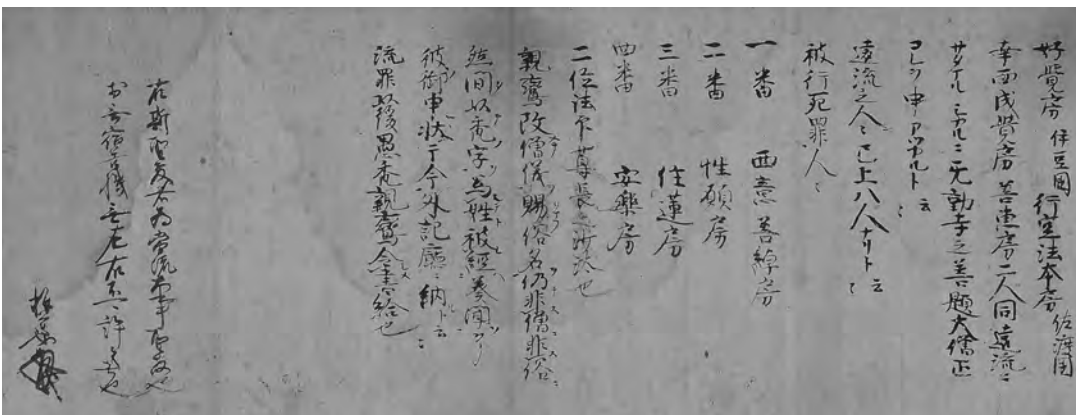 好覚房 伊豆国 行空法本房 佐渡国
幸西成覚房 善恵房二人同遠流ニ
サタマル シカルニ无動寺之善題大僧正
コレヲ申アツカルト 云々
遠流之人々已上八人ナリト 云々
被行死罪人々
一番 西意善綽房
二番 性願房
三番 住蓮房
四番 安楽房
二位法印尊長之沙汰也
親鸞改僧儀賜俗名仍非僧非俗
然間以禿字為姓被経奏聞了
彼御申状于今外記庁ニ納ト云々
流罪以後愚禿親鸞令書給也
右斯聖教者為当流大事聖教也
於無宿善機無左右不可許之者也